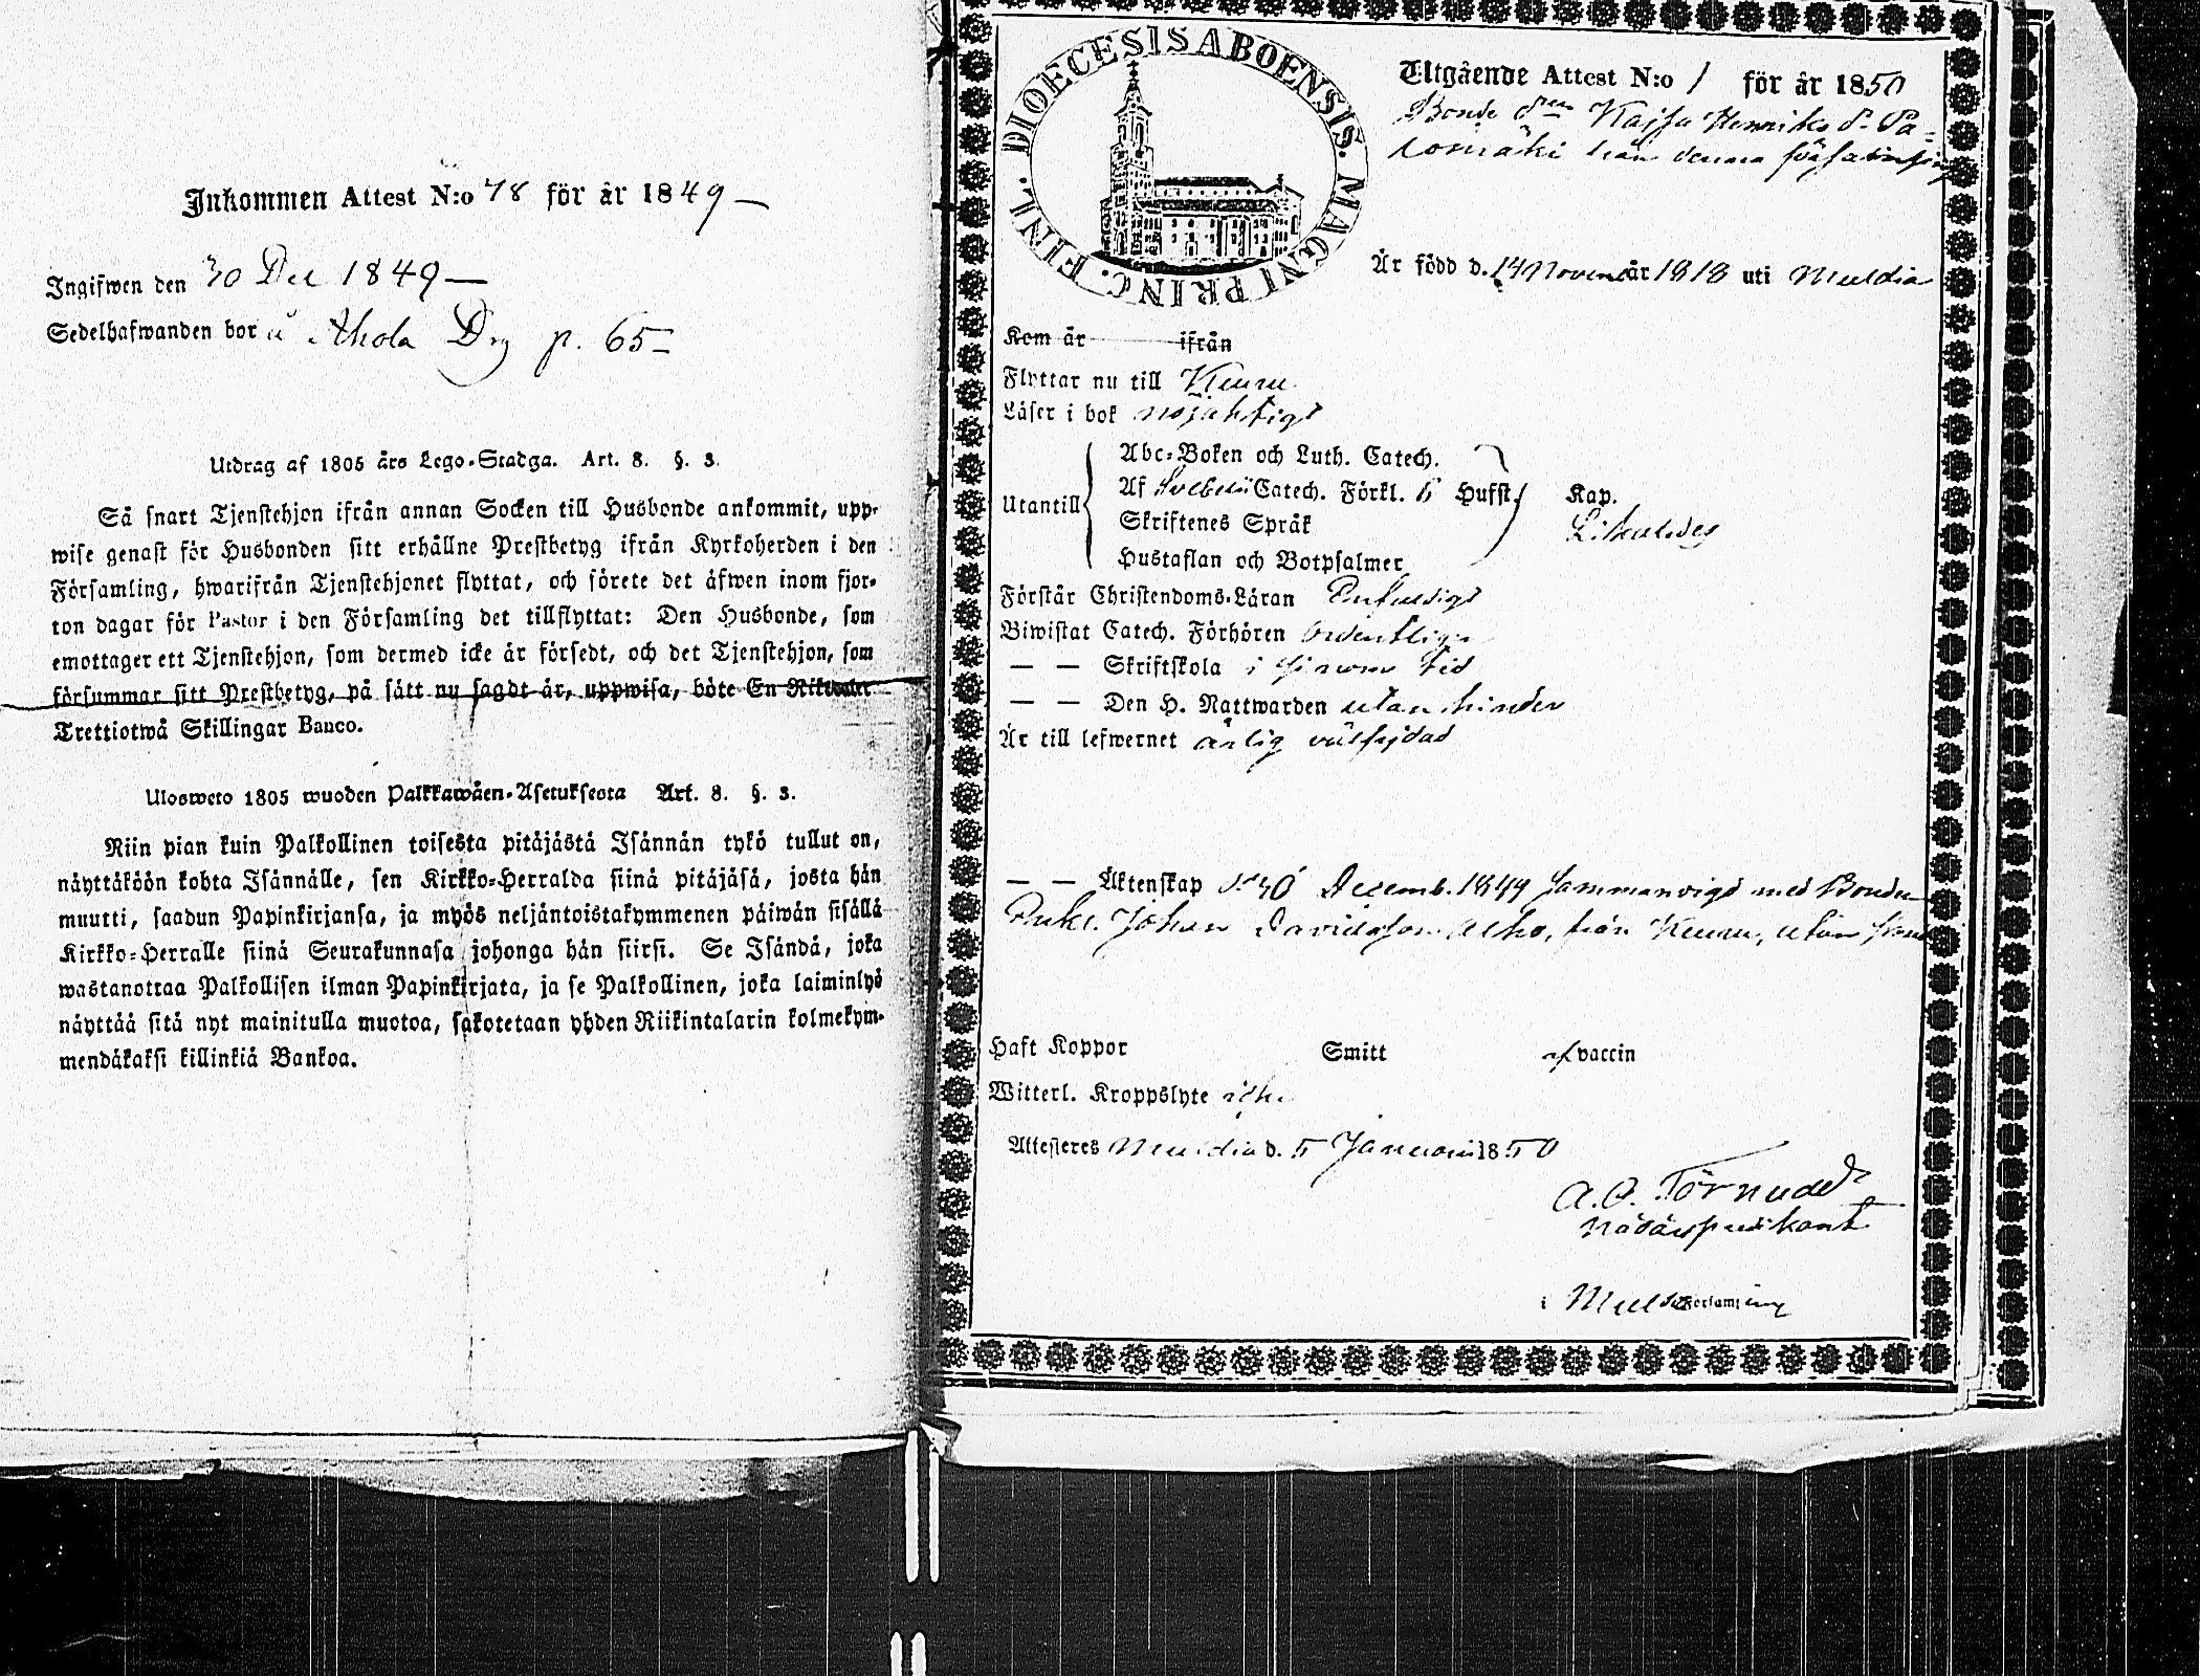 Inkommen Attest N:o 78 för år 1849 —
Ingifwen den 30 Dec 1849 —
Sedelhafwanden bor å Ahola Drg p. 65 —
Utdrag af 1805 års Lego-Stadga. Art. 8. §. 3.
Så snart Tjenstehjon ifrån annan Socken till Husbonde ankommit, upp-
wise genast för Husbonden sitt erhållne Prestbetyg ifrån Kyrkoherden i den
Församling, hwarifrån Tjenstehjonet flyttat, och förete det äfwen inom fjor-
ton dagar för Pastor i den Församling det tillflyttat: Den Husbonde, som
emottager ett Tjenstehjon, som dermed icke är försedt, och det Tjenstehjon, som
försummar sitt Prestbetyg, på sätt nu sagdt är, uppwisa, böte En Riksdaler
Trettiotwå Skillingar Banco.
Ulosweto 1805 wuoden Palkkawäen-Asetuksesta Art. 8. §. 3.
Niin pian kuin Palkollinen toisesta pitäjästä Isännän tykö tullut on,
näyttäköön kohta Isännälle, sen Kirkko-Herralda siinä pitäjäsä, josta hän
muutti, saadun Papinkirjansa, ja myös neljäntoistakymmenen päiwän sisällä
Kirkko-Herralle siinä Seurakunnasa johonga hän siirsi. Se Isändä, joka
wastanottaa Palkollisen ilman Papinkirjata, ja se Palkollinen, joka laiminlyö
näyttää sitä nyt mainitulla muotoa, sakotetaan yhden Riikintalarin kolmekym-
mendäkaksi killinkiä Bankoa.
DIOECESIS ABOENSIS. MAGNI PRINC. FINL.
Utgående Attest N:o 1 för år 1850
Bonde dren Kajsa Henriks d. Pa-
lomäki från denna församling
Är född d. 14 Novem år 1818 uti Muldia
Kom år ifrån
Flyttar nu till Keuru
Läser i bok nöjaktigt
Abc-Boken och Luth. Catech.
Utantill Af Svebelii Catech. Förkl. 6 Hufst. Kap.
Skriftenes Språk Likaledes
Hustaflan och Botpsalmer
Förstår Christendoms-Läran Enfaldigt
Biwistat Catech. Förhören Ordentligt
— — Skriftskola i sinom tid
— — Den H. Nattwarden utan hinder
Är till lefwernet ärlig välfrejdad
— — Äktenskap d. 30 Decemb. 1849 sammanvigd med Bonden
Enkl. Johan Davidsson Alho, från Keuru, utan
Haft Koppor Smitt af vaccin
Witterl. Kroppslyte icke
Attesteres Muldia d. 5 Januari 1850
A. O. Törnudd
Nådårspredikant
i Muldia Församling